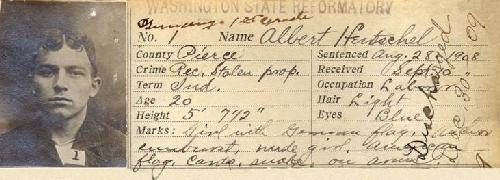 WASHINGTON STATE REFORMATORY
Germany 1st Grade
No. 1 Name Albert Hentschel
County Pierce Sentenced Aug. 28 1908
Crime Rec. Stolen prop. Received Sept.
Term Ind. Occupation
Age 20 Hair Light
Height 5' 7½" Eyes Blue
Marks: Girl with German flag,
nude girl,
flag, cards, on arms
Discharged
Dec. 30 09
1